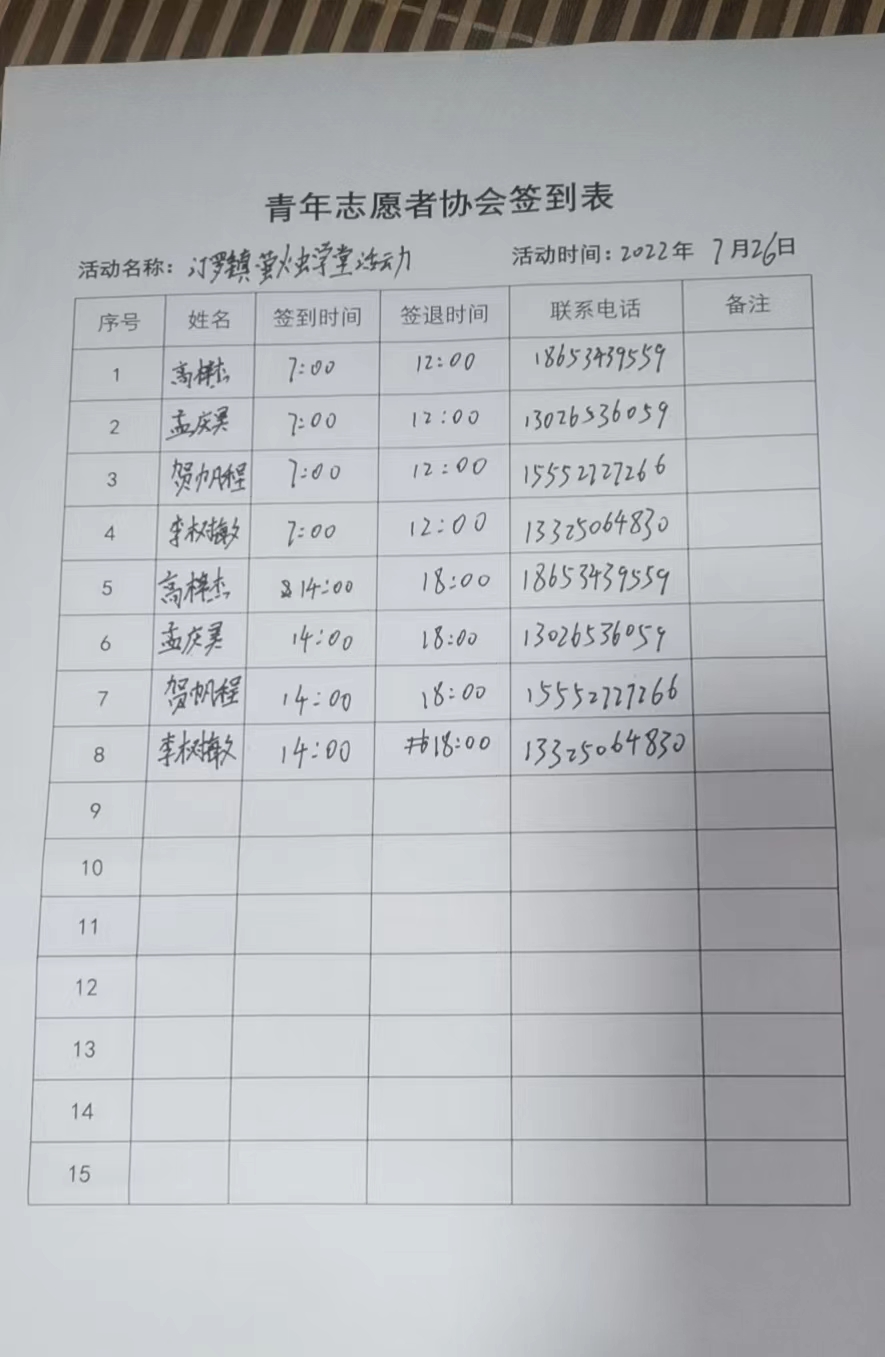 青年志愿者协会签到表
活动名称：汀罗镇萤火虫学堂活动 活动时间：2022年 7月26日
序号 姓名 签到时间 签退时间 联系电话 备注
1 高梓杰 7:00 12:00 18653439559
2 孟庆昊 7:00 12:00 13026536059
3 贺帆程 7:00 12:00 15552727266
4 李树敏 7:00 12:00 13325064830
5 高梓杰 14:00 18:00 18653439559
6 孟庆昊 14:00 18:00 13026536059
7 贺帆程 14:00 18:00 15552727266
8 李树敏 14:00 18:00 13325064830
9
10
11
12
13
14
15